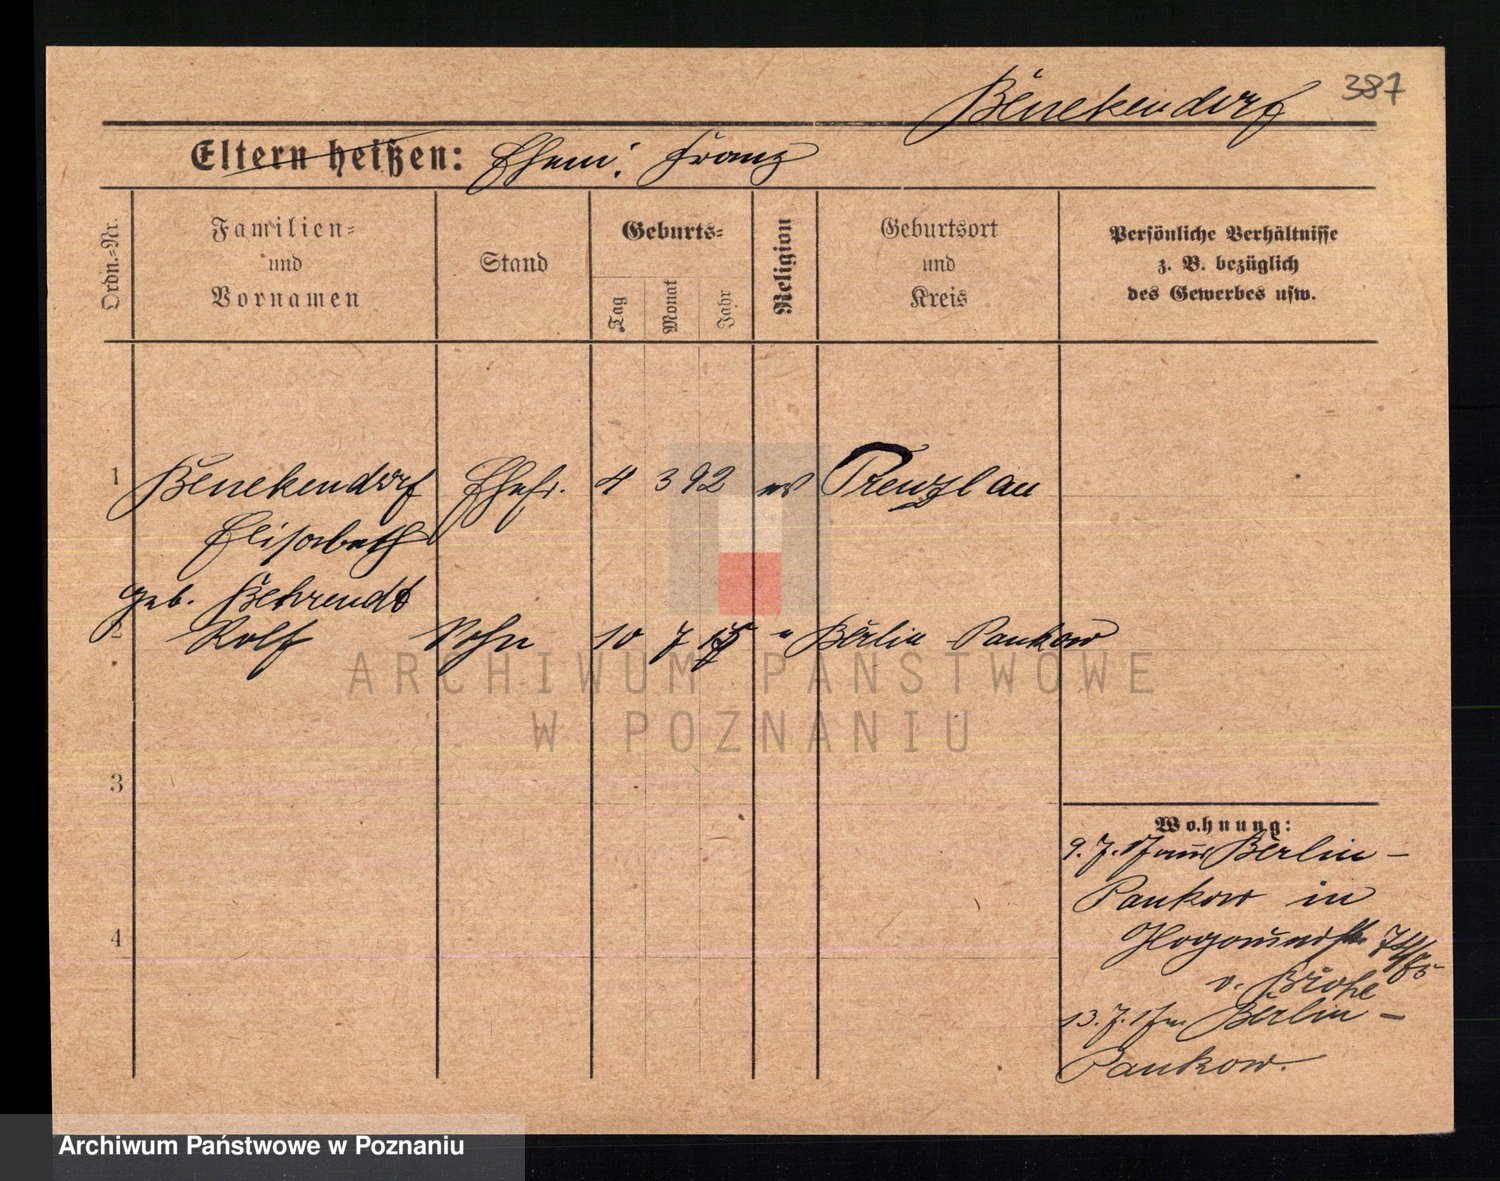 Benekendorf 387
Eltern heißen: Ehem: Franz
Ordn.-Nr.
Familien-
und
Vornamen
Stand
Geburts-
Tag
Monat
Jahr
Religion
Geburtsort
und
Kreis
Persönliche Verhältnisse
z. B. bezüglich
des Gewerbes usw.
1 Benekendorf Ehefr. 4 3 92 ev Prenzlau
Elisabeth
geb. Behrendt
2 Rolf Sohn 10 7 15 " Berlin-Pankow
3
4
Wohnung:
9.7.17 aus Berlin-
Pankow in
v. Brohe
13.7.17 n. Berlin-
Pankow.
ARCHIWUM PAŃSTWOWE
W POZNANIU
Archiwum Państwowe w Poznaniu